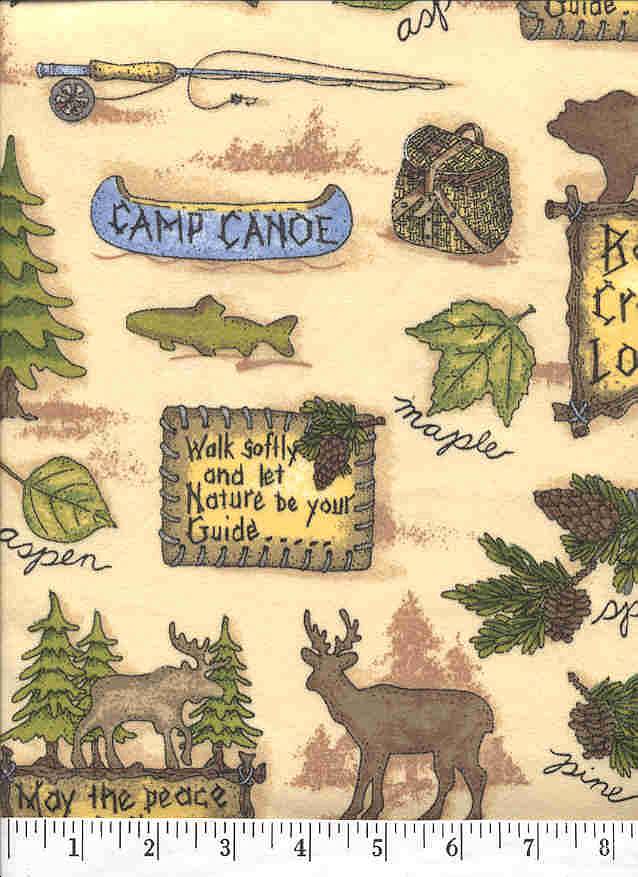 asp
Guide.
CAMP CANOE
maple
Walk softly
and let
Nature be your
Guide......
aspen
sp
pine
May the peace
1 2 3 4 5 6 7 8